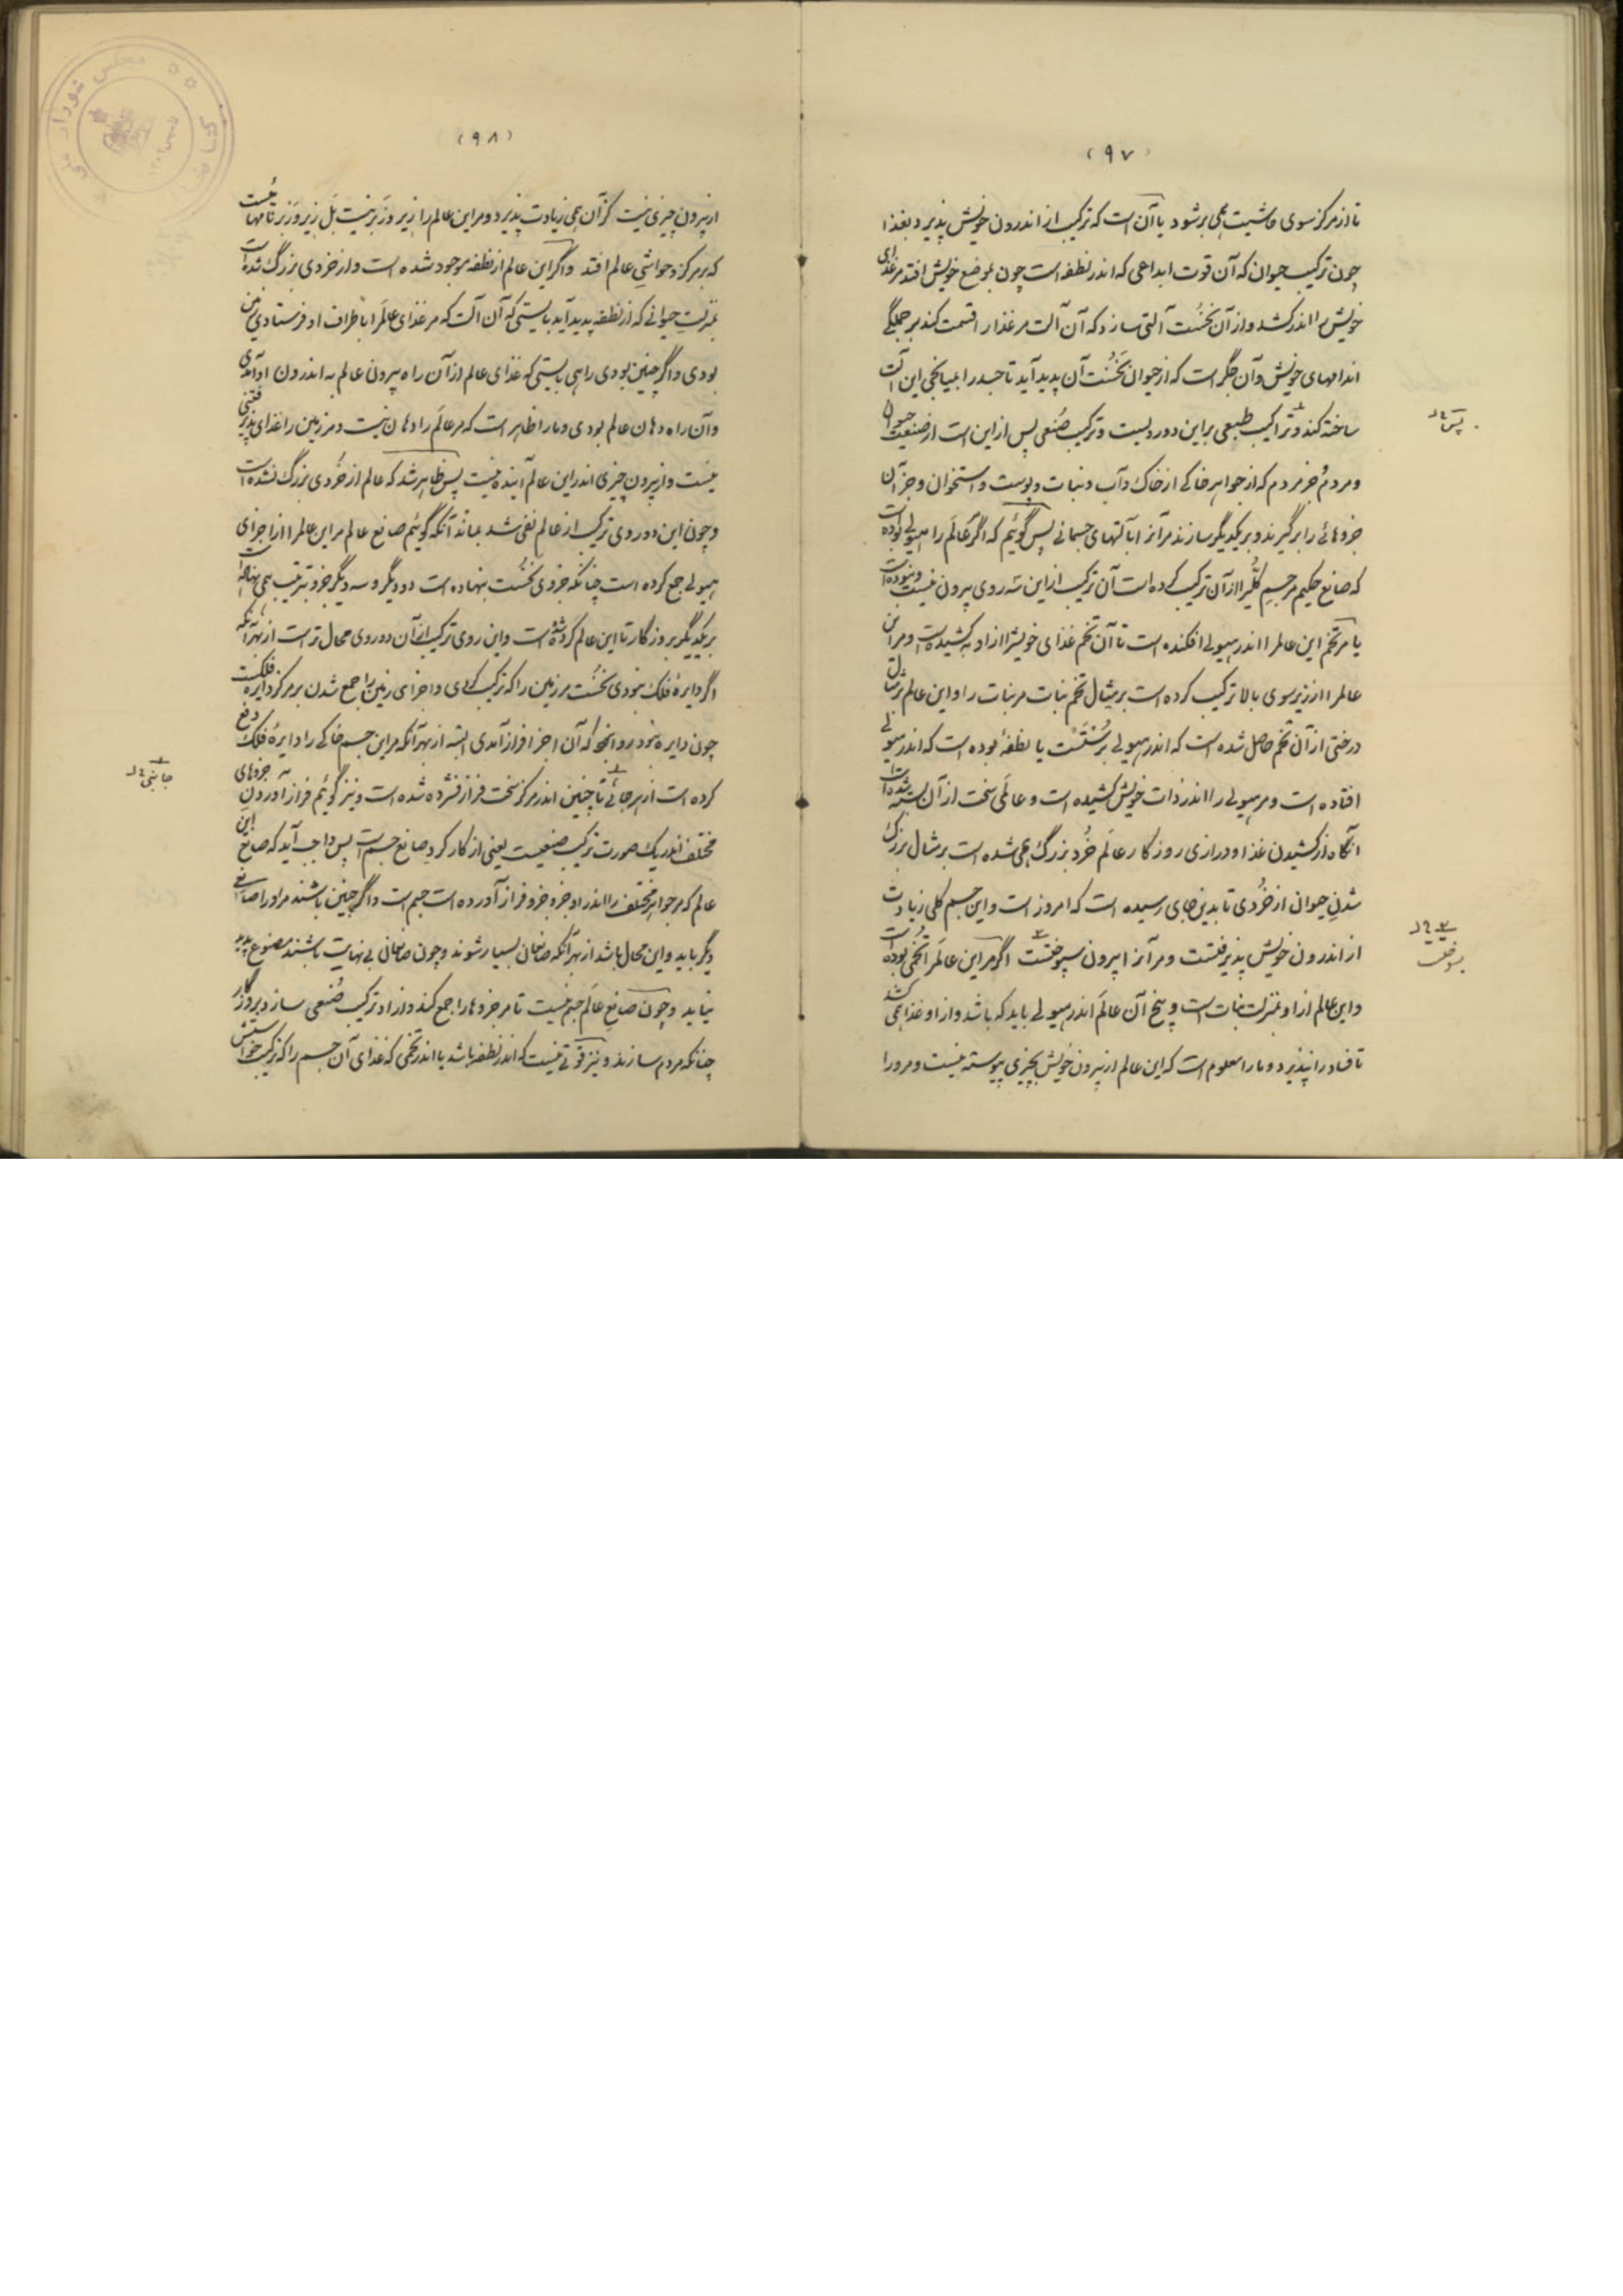 (۹۷)
تا از مرکز سوی حاشیت همی برشود یا آن است که ترکیب از اندرون خویش پذیرد بغذا
چون ترکیب حیوان که آن قوت ابداعی که اندر نطفه است چون بموضع خویش افتد مر غذای
خویش را اندر کشد و از آن نخست آلتی سازد که آن آلت مر غذا را قسمت کند بر جملگی
اندامهای خویش و آن جگر است که از حیوان نخست آن پدید آید تا جسد را بمیانجی این آلت
ساخته کند و تراکیب طبیعی بر این دو رویست و ترکیب صنعی پس از این است از صنعت حیوان
و مردم جز مردم که از جواهر خاکی از خاک و آب و نبات و پوست و استخوان و جز آن
جزوهائی را برگیرند و بر یکدیگر سازند مر آنرا بآلتهای جسمانی پس گوئیم که اگر عالم را هیولی بوده است
که صانع حکیم مر جسم کلی را از آن ترکیب کرده است آن ترکیب از این سه روی بیرون نیست و نبوده است
یا مر تخم این عالم را اندر هیولی افکنده است تا آن تخم غذای خویش را از او بر کشیده است و مر این
عالم را از زیر سوی بالا ترکیب کرده است بر مثال تخم نبات مر نبات را و این عالم بر مثال
درختی از آن تخم حاصل شده است که اندر هیولی برستست یا نطفهٔ بوده است که اندر هیولی
افتاده است و مر هیولی را اندر ذات خویش کشیده است و عالمی سخت از آن بسته شده است
آنگاه از کشیدن غذا و درازی روزگار عالم خرد بزرگ همی شده است بر مثال بزرگ
شدن حیوان از خردی تا بدین جای رسیده است که امروز است و این جسم کلی زیادت
از اندرون خویش پذیرفتست و مر آنرا بیرون سپوختست اگر مر این عالم را تخمی بوده است
و این عالم از او بمنزلت نبات است و بیخ آن عالم اندر هیولی باید که باشد و از او غذا همی کشد
تا فساد را نپذیرد و ما را معلوم است که این عالم از بیرون خویش بچیزی پیوسته نیست و مر او را
پس
(۹۸)
از بیرون چیزی نیست کز آن همی زیادت پذیرد و مر این عالم را زیر و زبر نیست بل زیر و زبر نامهائیست
که بر مرکز و حواشی عالم افتد و اگر این عالم از نطفه موجود شده است و از خردی بزرگ شده است
بمنزلت حیوانی که از نطفه پدید آید بایستی که آن آلت که مر غذای عالم را باطراف او فرستادی زمین
بودی و اگر چنین بودی راهی بایستی که غذای عالم از آن راه بیرون عالم به اندرون او آمدی
و آن راه دهان عالم بودی و ما را ظاهر است که مر عالم را دهان نیست و مر زمین را غذای پذیرفتنی
نیست و از بیرون چیزی اندر این عالم آینده نیست پس ظاهر شد که عالم از خردی بزرگ نشده است
و چون این دو روی ترکیب از عالم نفی شد بماند آنکه گوئیم صانع عالم مر این عالم را از اجزای
هیولی جمع کرده است چنانکه جزوی نخست بنهاده است و دو دیگر و سه دیگر جزو بترتیب همی نهاده است
بر یکدیگر بروزگار تا این عالم کرده شده است و این روی ترکیب از آن دو روی محال تر است از بهر آنکه
اگر دایرهٔ فلک نبودی نخست مر زمین را که ترکیب کردی و اجزای زمین را جمع شدن بر مرکز دایره فلکست
چون دایره نبود روا نبود که آن اجزا فراز آمدی البته از بهر آنکه مر این جسم خاکی را دایرهٔ فلک دفع
کرده است از هر جائی تا چنین اندر مرکز سخت فراز فشرده شده است و نیز گوئیم فراز آوردن جزوهای
مختلف اندر یک صورت ترکیب صنعیست یعنی از کار کرد صانع جسم است پس واجب آید که صانع این
عالم که مر جواهر مختلف را اندر او جزو جزو فراز آورده است جسم است و اگر چنین باشند مر او را صانعی
دیگر باید و این محال باشد از بهر آنکه صانعان بسیار شوند و چون صانعان بی نهایت باشند مصنوع پدید
نیاید و چون صانع عالم جسم نیست تا مر جزوها را جمع کند و از او ترکیب صنعی سازد بروزگار
چنانکه مردم سازند و نیز قوتی نیست که اندر نطفه باشد یا اندر تخمی که غذای آن جسم را که ترکیب خواستش
جانبی